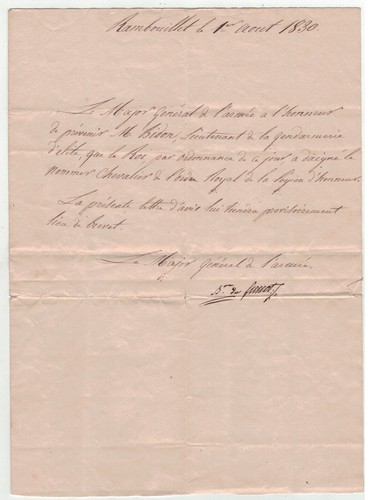 Rambouillet le 1er Aout 1830.
Le Major Général de l'armée a l'honneur
de prévenir M. Bidon, Lieutenant de la gendarmerie
d'élite, que le Roi, par ordonnance de ce jour, a daigné le
nommer Chevalier de l'ordre Royal de la Légion d'honneur.
La présente lettre d'avis lui tiendra provisoirement
lieu de brevet.
Le Major Général de l'armée.
Bon de